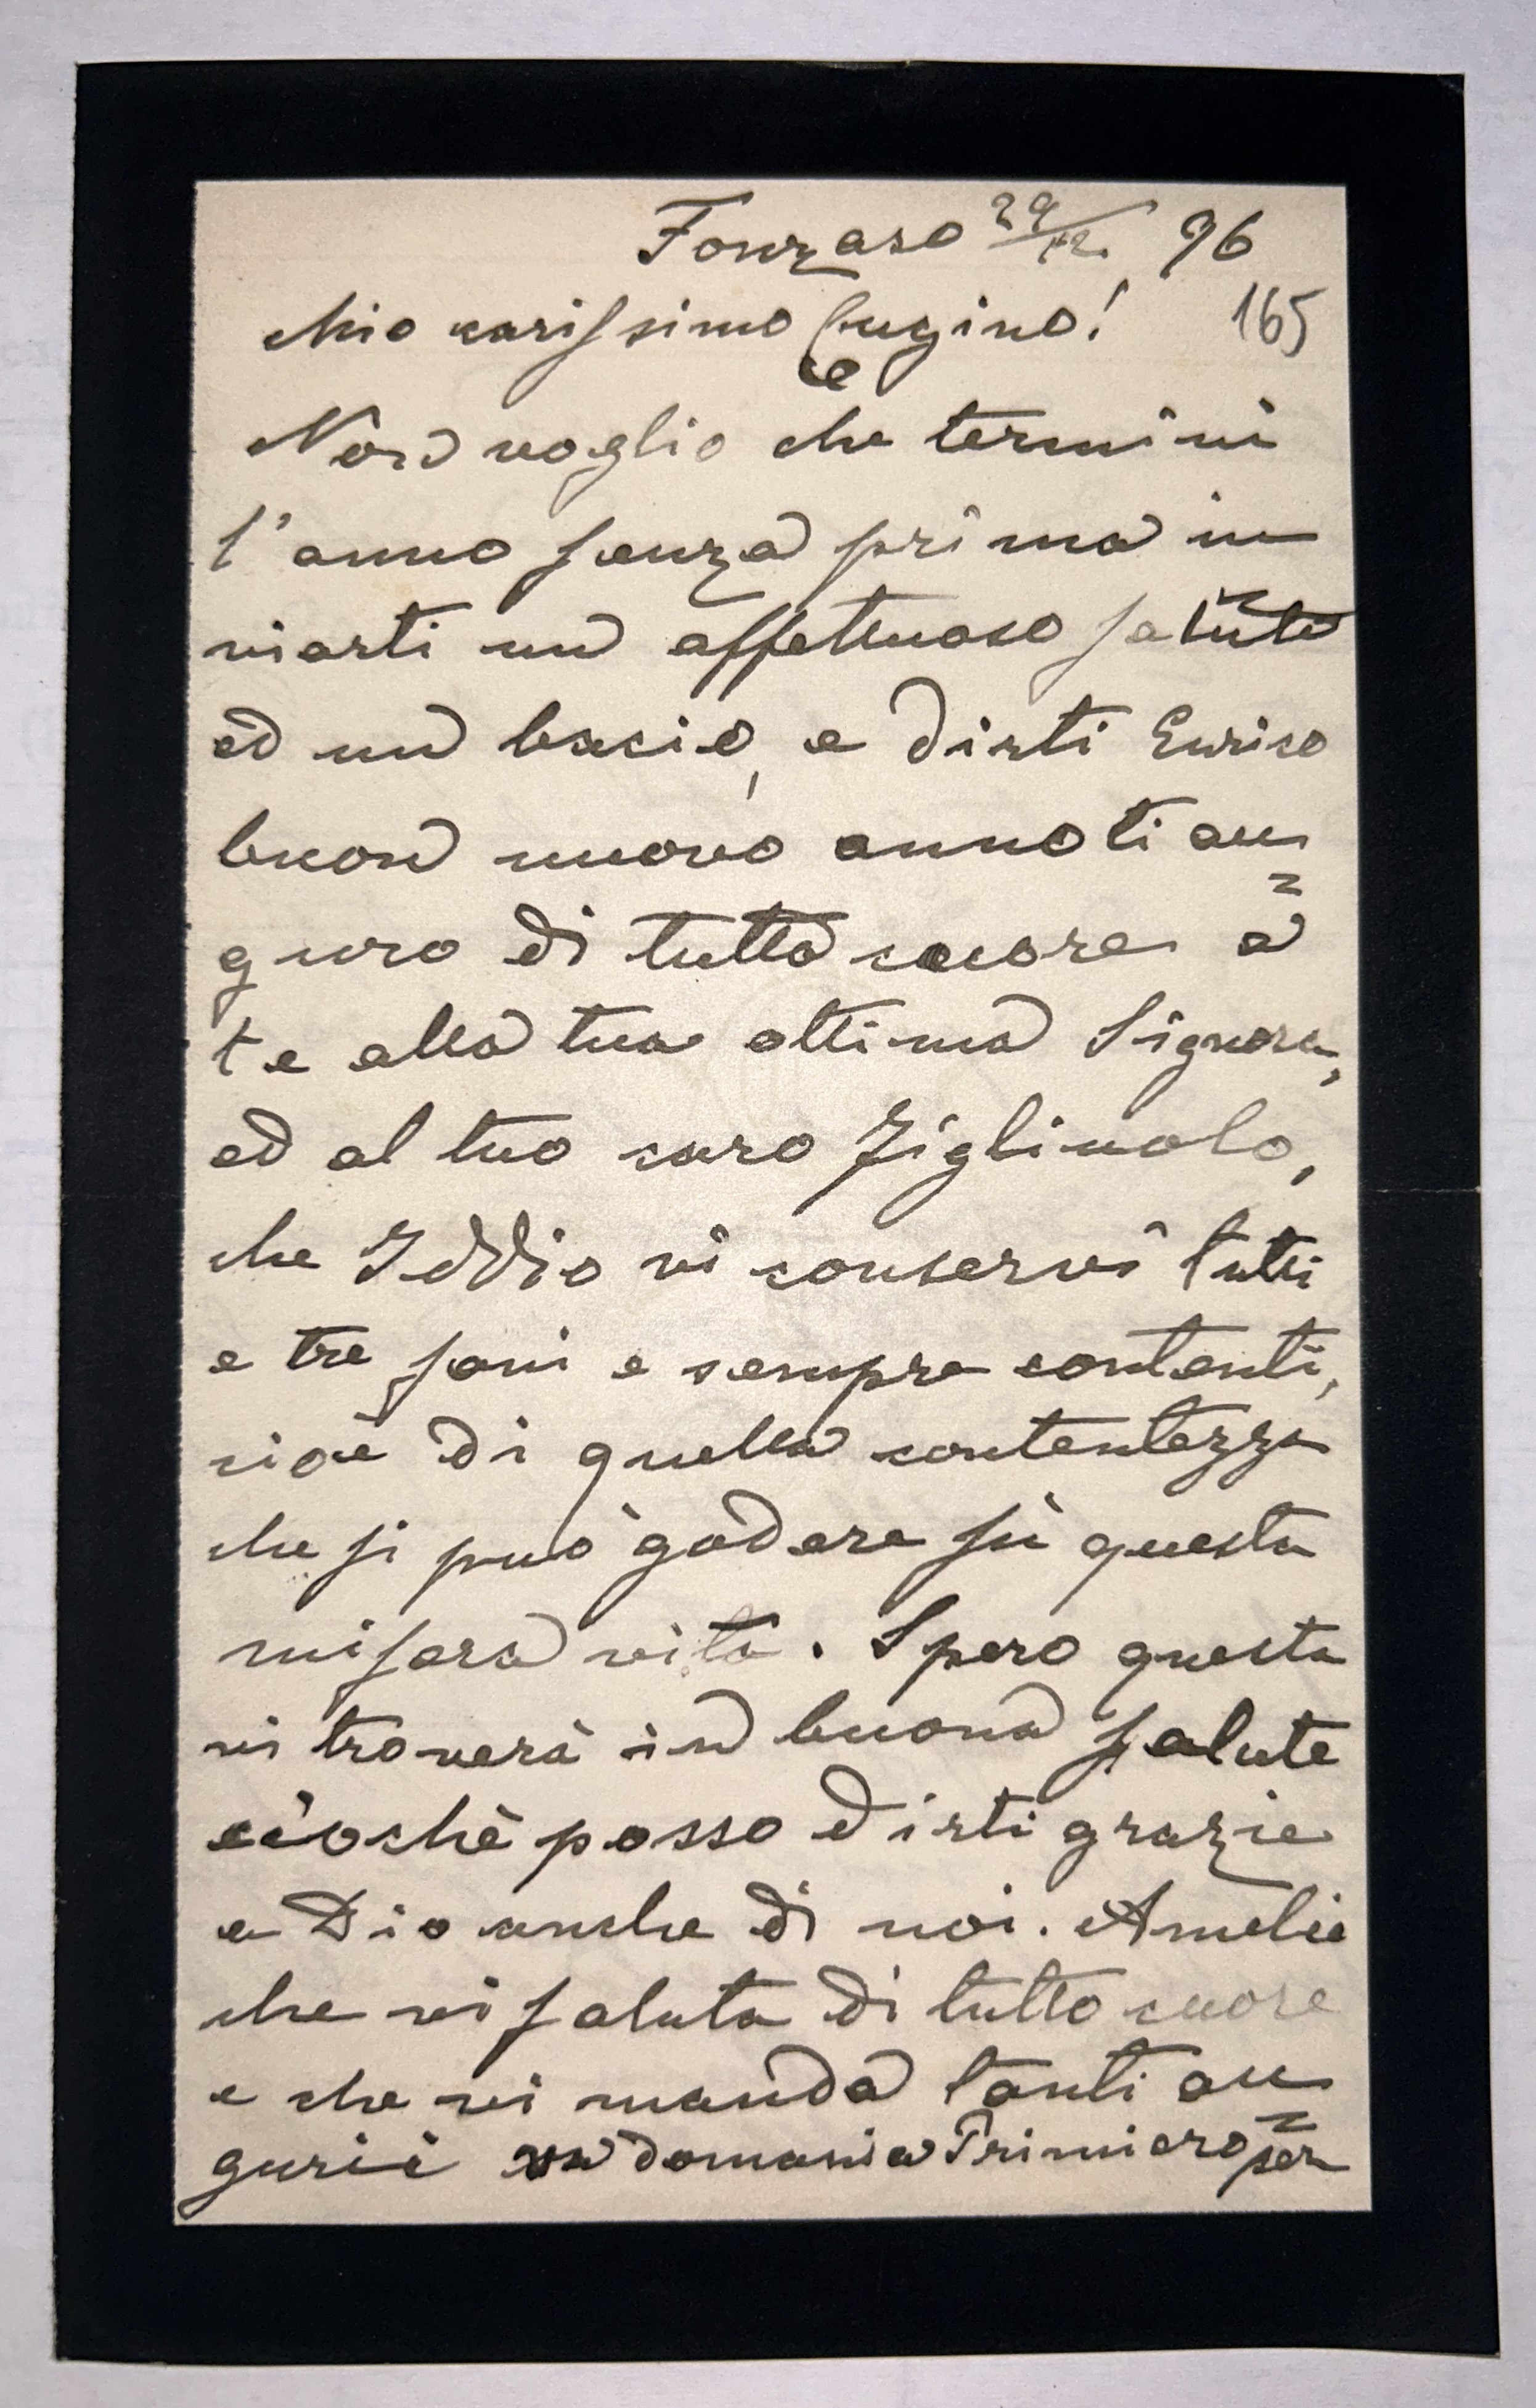 Fonzaso 29/12 96
Mio carissimo Cugino! 165
Non voglio che termini
l'anno senza prima in
viarti un affettuoso salute
ed un bacio, e dirti Enrico
buon nuovo anno ti au
guro di tutto cuore a
te alla tua ottima Signora,
ed al tuo caro Figliuolo,
che Iddio vi conservi tutti
e tre sani e sempre contenti,
cioè di quella contentezza
che si può godere sù questa
misera vita. Spero questa
vi troverà in buona salute
ciochè posso dirti grazie
a Dio anche di noi. Amelie
che vi saluta di tutto cuore
e che vi manda tanti au=
gurii va domani a Primiero per